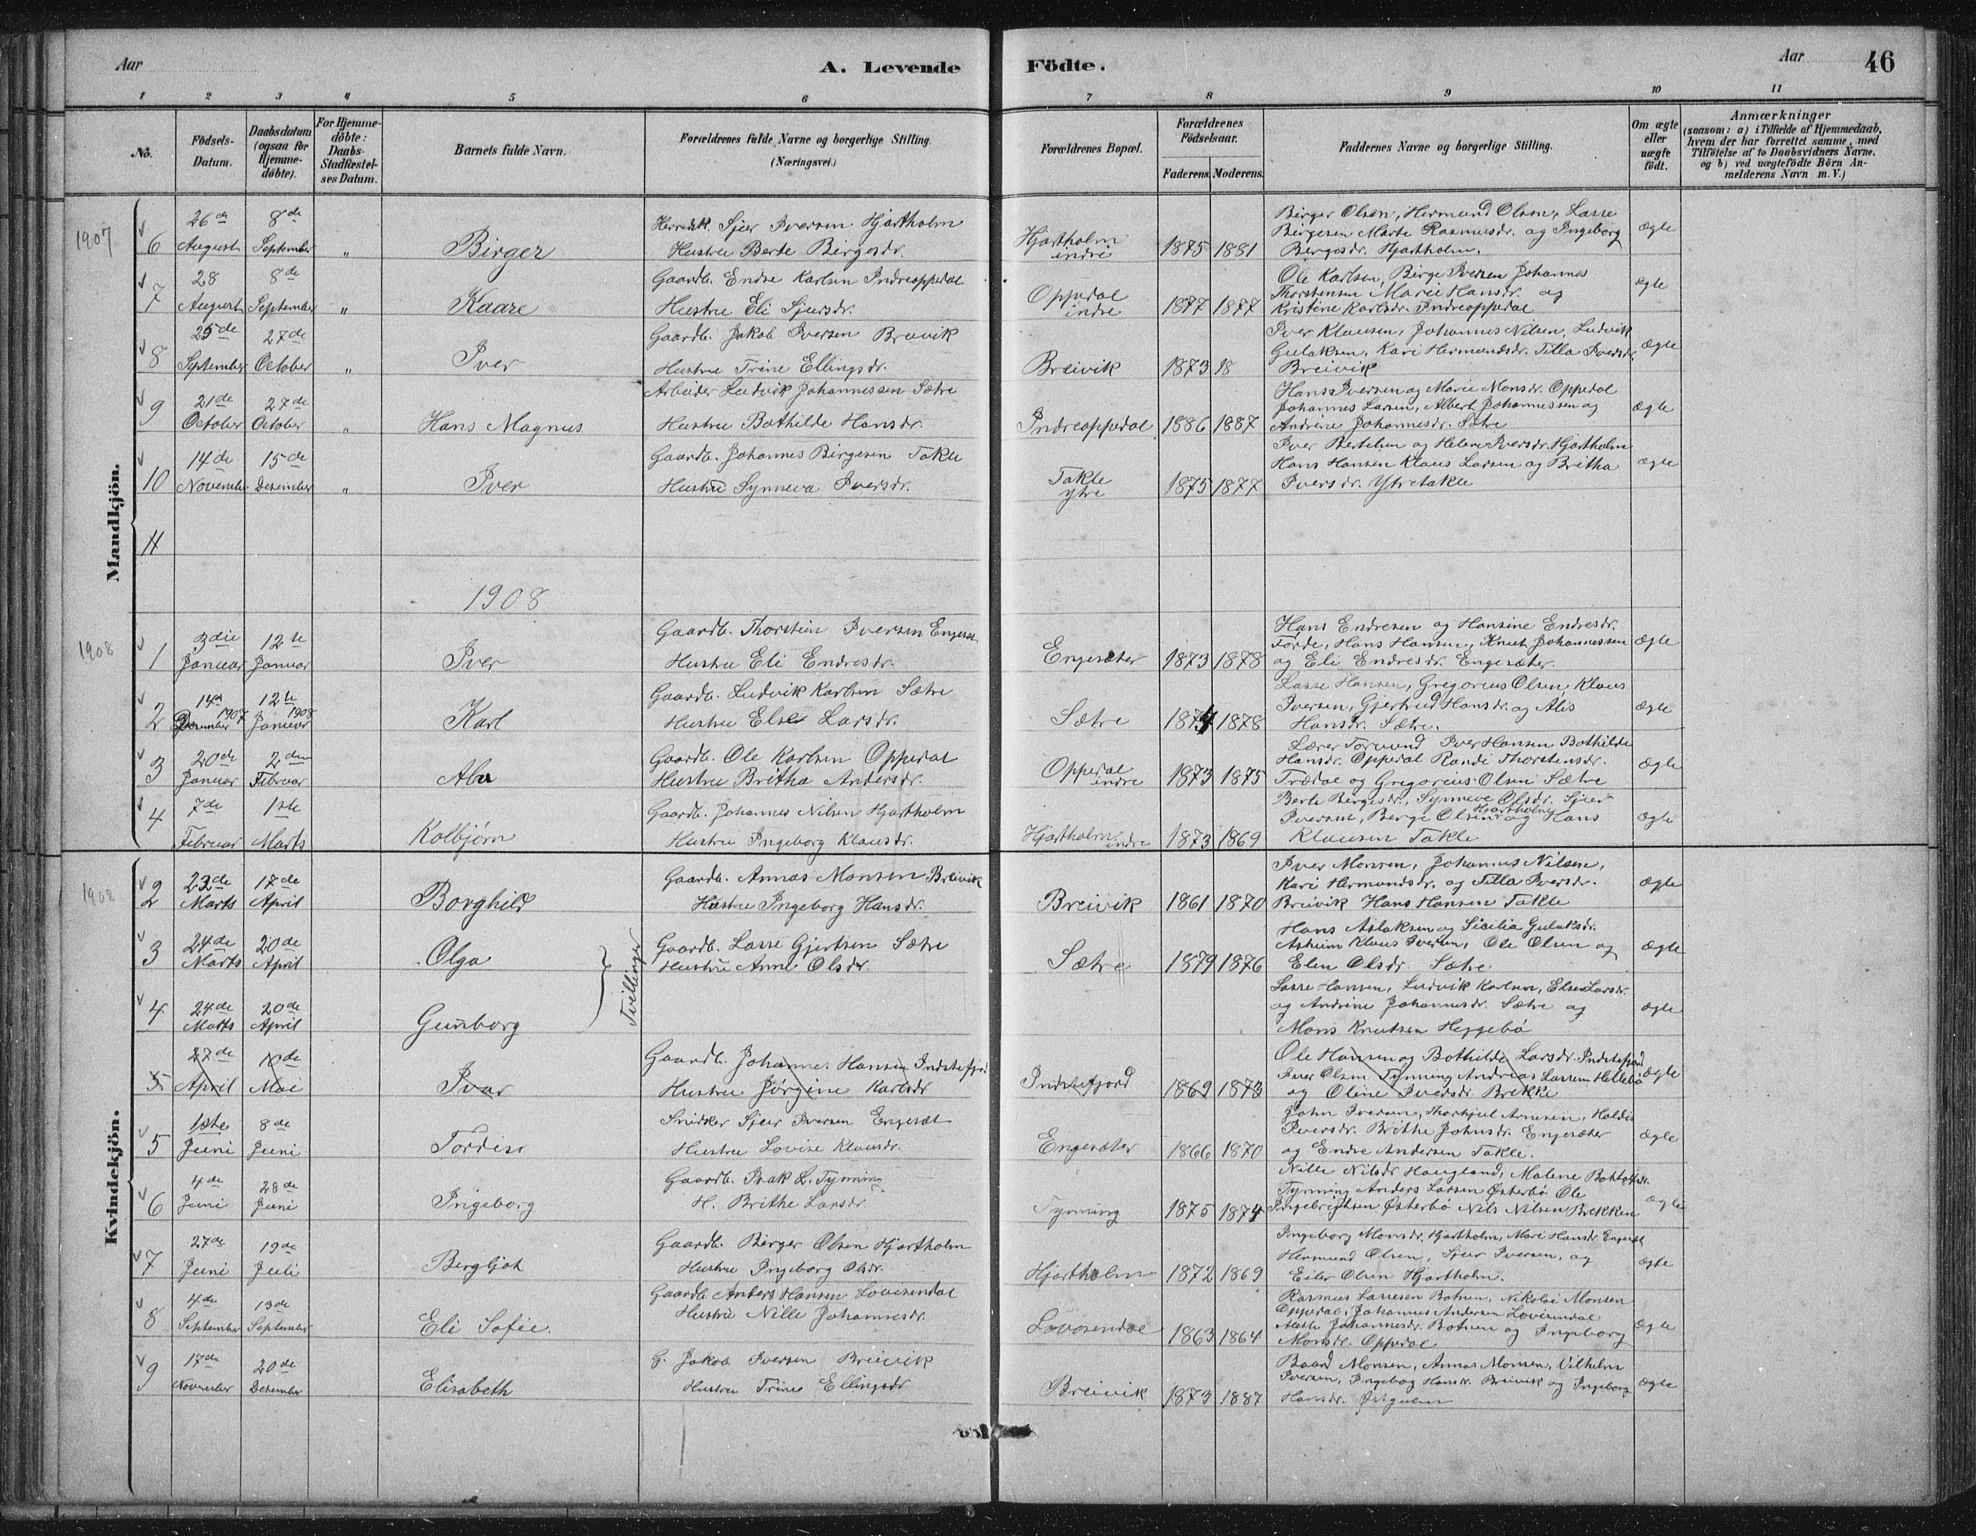 Aar
A. Levende
Födte.
Aar
46
1 2 3 4 5 6 7 8 9 10 11
No.
Födsels-Datum.
Daabsdatum (ogsaa for Hjemme-döbte).
For Hjemme-döbte: Daabs-Stadfæstel-ses Datum.
Barnets fulde Navn.
Forældrenes fulde Navne og borgerlige Stilling.
(Næringsvei.)
Forældrenes Bopæl.
Forældrenes Födselsaar.
Faderens. Moderens.
Faddernes Navne og borgerlige Stilling.
Om ægte eller uægte födt.
Anmærkninger
(saasom: a) i Tilfælde af Hjemmedaab,
hvem der har forrettet samme, med
Tilföielse af to Daabsvidners Navne,
og b) ved uægtefödte Börn An-
melderens Navn m. V.)
Mandkjön.
1907
6 26de August 8de September " Birger
Sjur Iversen Hjartholm
Hustru Berte Birgesdr.
Hjartholm indre 1875 1881
Birger Olsen, Hermund Olsen, Lasse
Birgesen Marte Rasmusdr. og Ingeborg
Bergesdr. Hjartholm.
ægte
7 28 August 8de September " Kaare
Gaardb. Endre Karlsen Indreoppedal
Hustru Eli Sjursdr.
Oppedal indre 1877 1877
Ole Karlsen, Birge Iversen Johannes
Thorstensen Marie Hansdr. og
Kristine Karlsdr. Indreoppedal
ægte
8 25de September 27de October " Iver
Gaardb. Jakob Iversen Breivik
Hustru Trine Ellingsdr.
Breivik 1873 18
Iver Klausen, Johannes Nilsen, Ludvik
Gulaksen, Kari Hermundsdr. Tilla Iversdr.
Breivik
ægte
9 21de October 27de October " Hans Magnus
Arbeider Ludvik Johannessen Sætre
Hustru Bothilde Hansdr.
Indreoppedal 1886 1887
Hans Iversen og Marie Monsdr. Oppedal
Johannes Larsen, Albert Johannessen og
Andrine Johannesdr. Sætre
ægte
10 14de November 15de Desember " Iver
Gaardb. Johannes Birgesen Takle
Hustru Synneva Iversdr.
Takle ytre 1875 1877
Iver Bertelsen og Helene Iversdr. Hjartholm
Hans Hansen Klaus Larsen og Britha
Iversdr. Ytretakle
ægte
11
1908
1908
1 3die Januar 12te Januar Iver
Gaardb. Thorstein Iversen Engesæt
Hustru Eli Endresdr.
Engesæter 1873 1878
Hans Endresen og Hansine Endresdr.
Førde, Hans Hansen, Knut Johannessen
og Eli Endresdr. Engesæter.
ægte
2 14d Desember 1907 12te Januar 1908 Karl
Gaardb. Ludvik Karlsen Sætre
Hustru Else Larsdr.
Sætre 1874 1878
Lasse Hansen, Gregorius Olsen, Klaus
Iversen, Gjertrud Hansdr. og Alis
Hansdr. Sætre.
ægte
3 20de Januar 2den Februar Alv
Gaardb. Ole Karlsen Oppedal
Hustru Britha Andersdr.
Oppedal indre 1873 1875
Lærer Tormund Iver Hansen Bothilde
Hansdr. Oppedal Randi Thorstensdr.
Trædal og Gregorius Olsen Sætre
ægte
4 7de Februar 1ste Marts Kolbjørn
Gaardb. Johannes Nilsen Hjartholm
Hustru Ingeborg Klausdr.
Hjartholm indre 1873 1869
Berte Bergesdr., Synneve Olsdr. Sjur
Iversen, Berge Olsen Hjartholm og Hans
Klausen Takle
ægte
Kvindekjön.
1908
2 23de Marts 17de April Borghild
Gaardb. Annas Monsen Breivik
Hustru Ingeborg Hansdr.
Breivik 1861 1870
Iver Monsen, Johannes Nilsen,
Kari Hermundsdr. og Tilla Iversdr.
Breivik Hans Hansen Takle
ægte
3 24de Marts 20de April Olga
Gaardb. Lasse Gjertsen Sætre
Hustru Anne Olsdr.
Tvillinger
Sætre 1879 1876
Hans Aslaksen og Sicilia Gulaksdr.
Asheim Klaus Iversen, Ole Olsen og
Elen Olsdr. Sætre
ægte
4 24de Marts 20de April Gunborg
Lasse Hansen, Ludvik Karlsen, Else Larsdr.
og Andrine Johannesdr. Sætre og
Mons Knutsen Heggebø
ægte
5 27de April 10de Mai Ivar
Gaardb. Johannes Hansen Indstefjord
Hustru Jørgine Karlsdr
Indstefjord 1869 1873
Ole Hansen og Bothilde Larsdr. Indstefjord
Iver Olsen Tynning Andreas Larsen Hellebø
og Oline Iversdr. Brekke
ægte
5 1ste Juni 8de Juni Tordis
Snidker Sjur Iversen Engesæt
Hustru Lovise Klausdr.
Engesæter 1866 1870
John Iversen, Thorkjel Arnesen, Haldis
Iversdr. Brithe Johnsdr. Engesæter
og Endre Andersen Takle.
ægte
6 4de Juni 28de Juni Ingeborg
Gaardb. Isak L. Tynning
H. Brithe Larsdr.
Tynning 1875 1874
Nille Nilsdr Haugland, Malene
Tynning Anders Larsen Østerbø Ole
Ingebrigtsen Østerbø Nils Nilsen Brekken
ægte
7 27de Juni 19de Juli Bergljot
Gaardb. Birger Olsen Hjartholm
Hustru Ingeborg Olsdr.
Hjartholm 1872 1869
Ingeborg Monsdr. Hjartholm, Mari Hansdr. Engesæt
Hermund Olsen, Sjur Iversen, og
Eiler Olsen Hjartholm.
ægte
8 4de September 13de September Eli Sofie.
Gaardb. Anders Hansen Lovisendal
Hustru Nille Johannesdr.
Lovisendal 1863 1864
Rasmus Larsen Botnen, Nikolai Monsen
Oppedal, Johannes Andersen Lovisendal
Johannesdr. Botnen og Ingeborg
Monsdr. Oppedal
ægte
9 17de November 20de Desember Elisabeth
G. Jakob Iversen Breivik
Hustru Trine Ellingsdr
Breivik 1873 1887
Baard Monsen, Annas Monsen, Vilhelm
Iversen, Ingebog Hansdr. Breivik og Ingeborg
Hansdr.
ægte